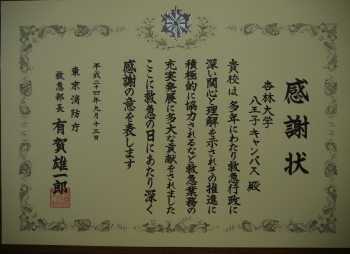 感謝状
杏林大学
八王子キャンパス 殿
貴校は多年にわたり救急行政に
深い関心と理解を示されその推進に
積極的に協力されるなど救急業務の
充実発展に多大な貢献をされました
ここに救急の日にあたり深く
感謝の意を表します
平成二十四年九月十三日
東京消防庁
救急部長 有賀雄一郎